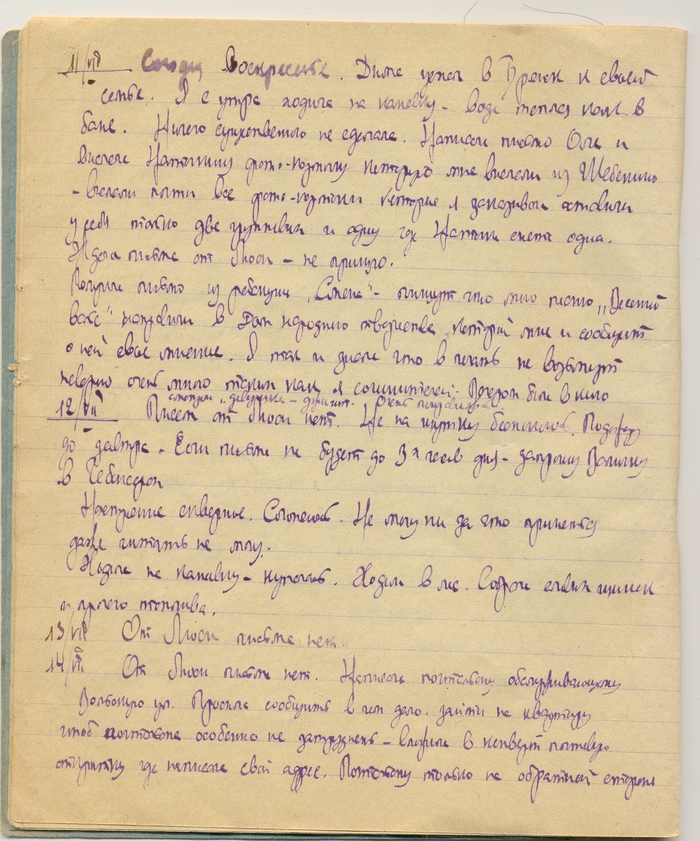 11/VII Сегодня Воскресенье. Дима уехал в Брянск к своей
семье. Я с утра ходила на канавку - вода теплая как в
бане. Ничего существенного не сделала. Написала письмо Оле и
выслала Наташину фото-карточку которую мне выслали из
- выслали почти все фото-карточки которые я заказывала оставили
у себя только две групповых и одну где Наташа снята одна.
Ждала письма от Люси - не пришло.
Получила письмо из редакции „Смена" - пишут что мою песню „Весенний
вальс" направили в Дом народного творчества, который мне и сообщит
о ней свое мнение. Я так и знала что в печать не возьмут
наверно очень много таких как я сочинителей. Вечером были в кино
смотрели „ - " очень понравилось
12/VII Писем от Люси нет. Не на шутку беспокоюсь. Подожду
до завтра. Если письма не будет до 3х часов дня - запрошу
в
Настроение скверное. Не могу ни за что приняться
даже читать не могу.
Ходила на канавку - купалась. Ходили в лес. Собрали еловых шишек
и прочего топлива.
13/VII От Люси письма нет.
14/VII От Люси письма нет. Написала почтальону обслуживающему
ул. Просила сообщить в чем дело. зайти на квартиру
чтоб почтальона особенно не затруднять - вложила в конверт почтовую
открытку где написала свой адрес. Почтальону только на обратной стороне